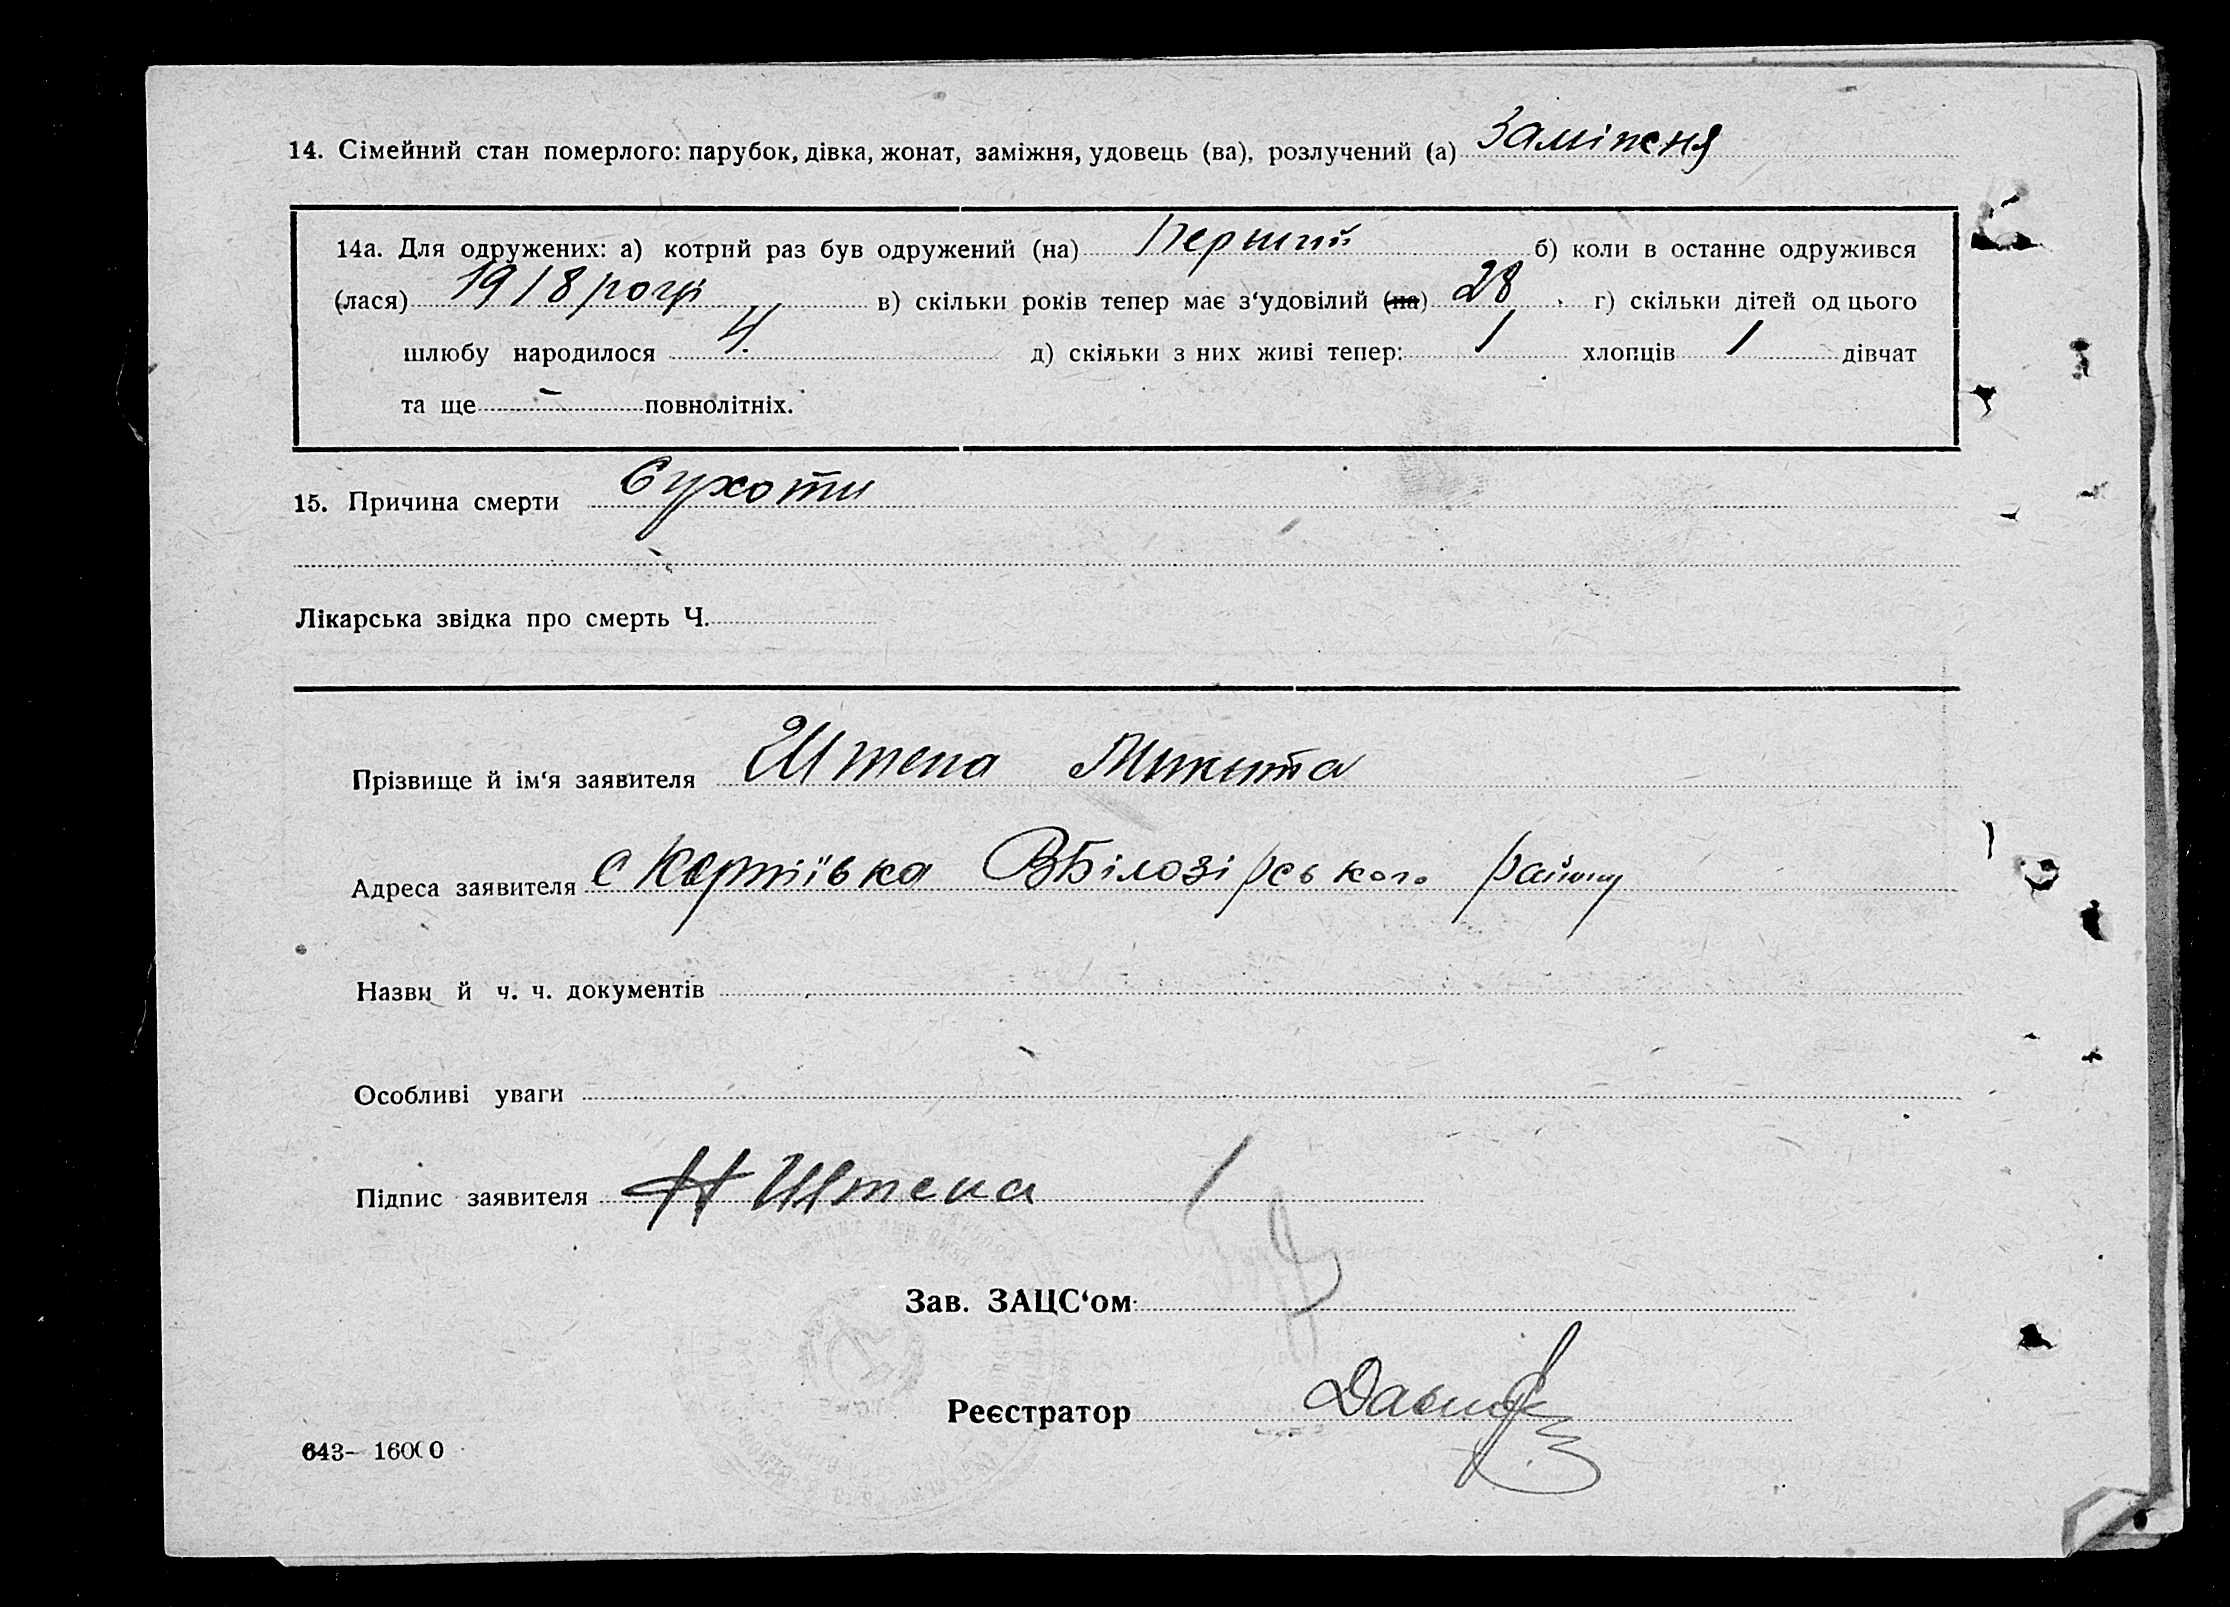 14. Сімейний стан померлого: парубок, дівка, жонат, заміжня, удовець (ва), розлучений (а) Заміжня
14а. Для одружених: а) котрий раз був одружений (на) Перший б) коли в останнє одружився
(лася) 1918 році в) скільки років тепер має з‘удовілий (на) 28 г) скільки дітей од цього
шлюбу народилося 4. д) скільки з них живі тепер: 1 хлопців 1 дівчат
та ще - повнолітніх.
15. Причина смерти Сухоти
Лікарська звідка про смерть Ч.
Прізвище й ім‘я заявителя Штепа Микита
Адреса заявителя с ВБілозірського району
Назви й ч. ч. документів
Особливі уваги
Підпис заявителя Н Штепа
Зав. ЗАЦС‘ом
Реєстратор
643– 16000